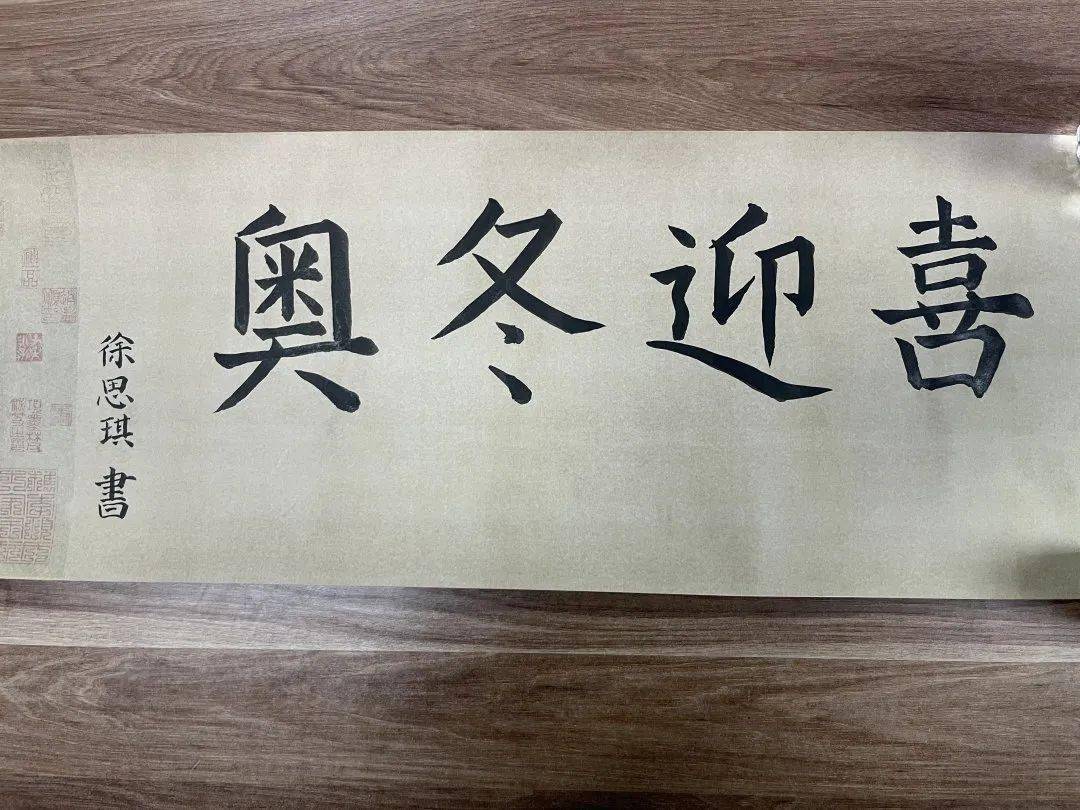 喜迎冬奥
徐思琪 書